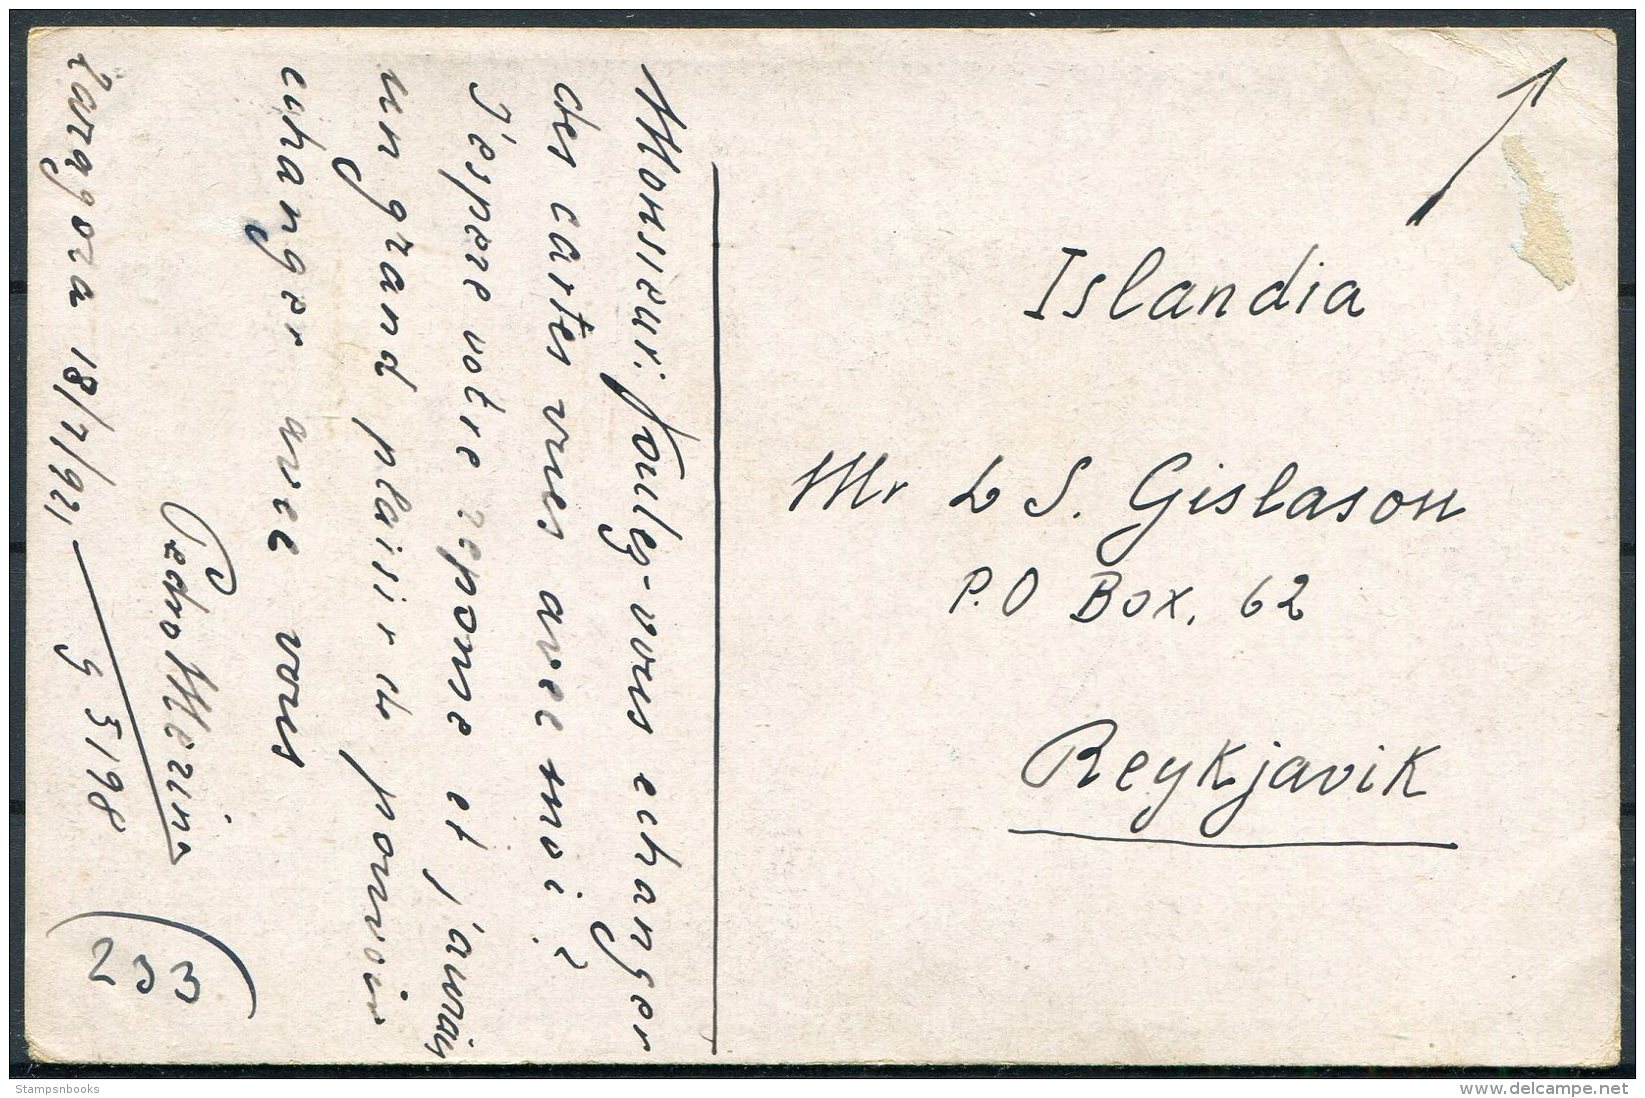 Monsieur: Vouley-vous echanger
des cartes vues avec moi?
J'espere votre reponse et j'aurais
un grand plaisir de pouvoir
echanger avec vous
Pedro
Zaragora 18/7/921
G 5198
233
Islandia
Mr L S. Gislason
P.O Box. 62
Reykjavik
Stampsnbooks
www.delcampe.net